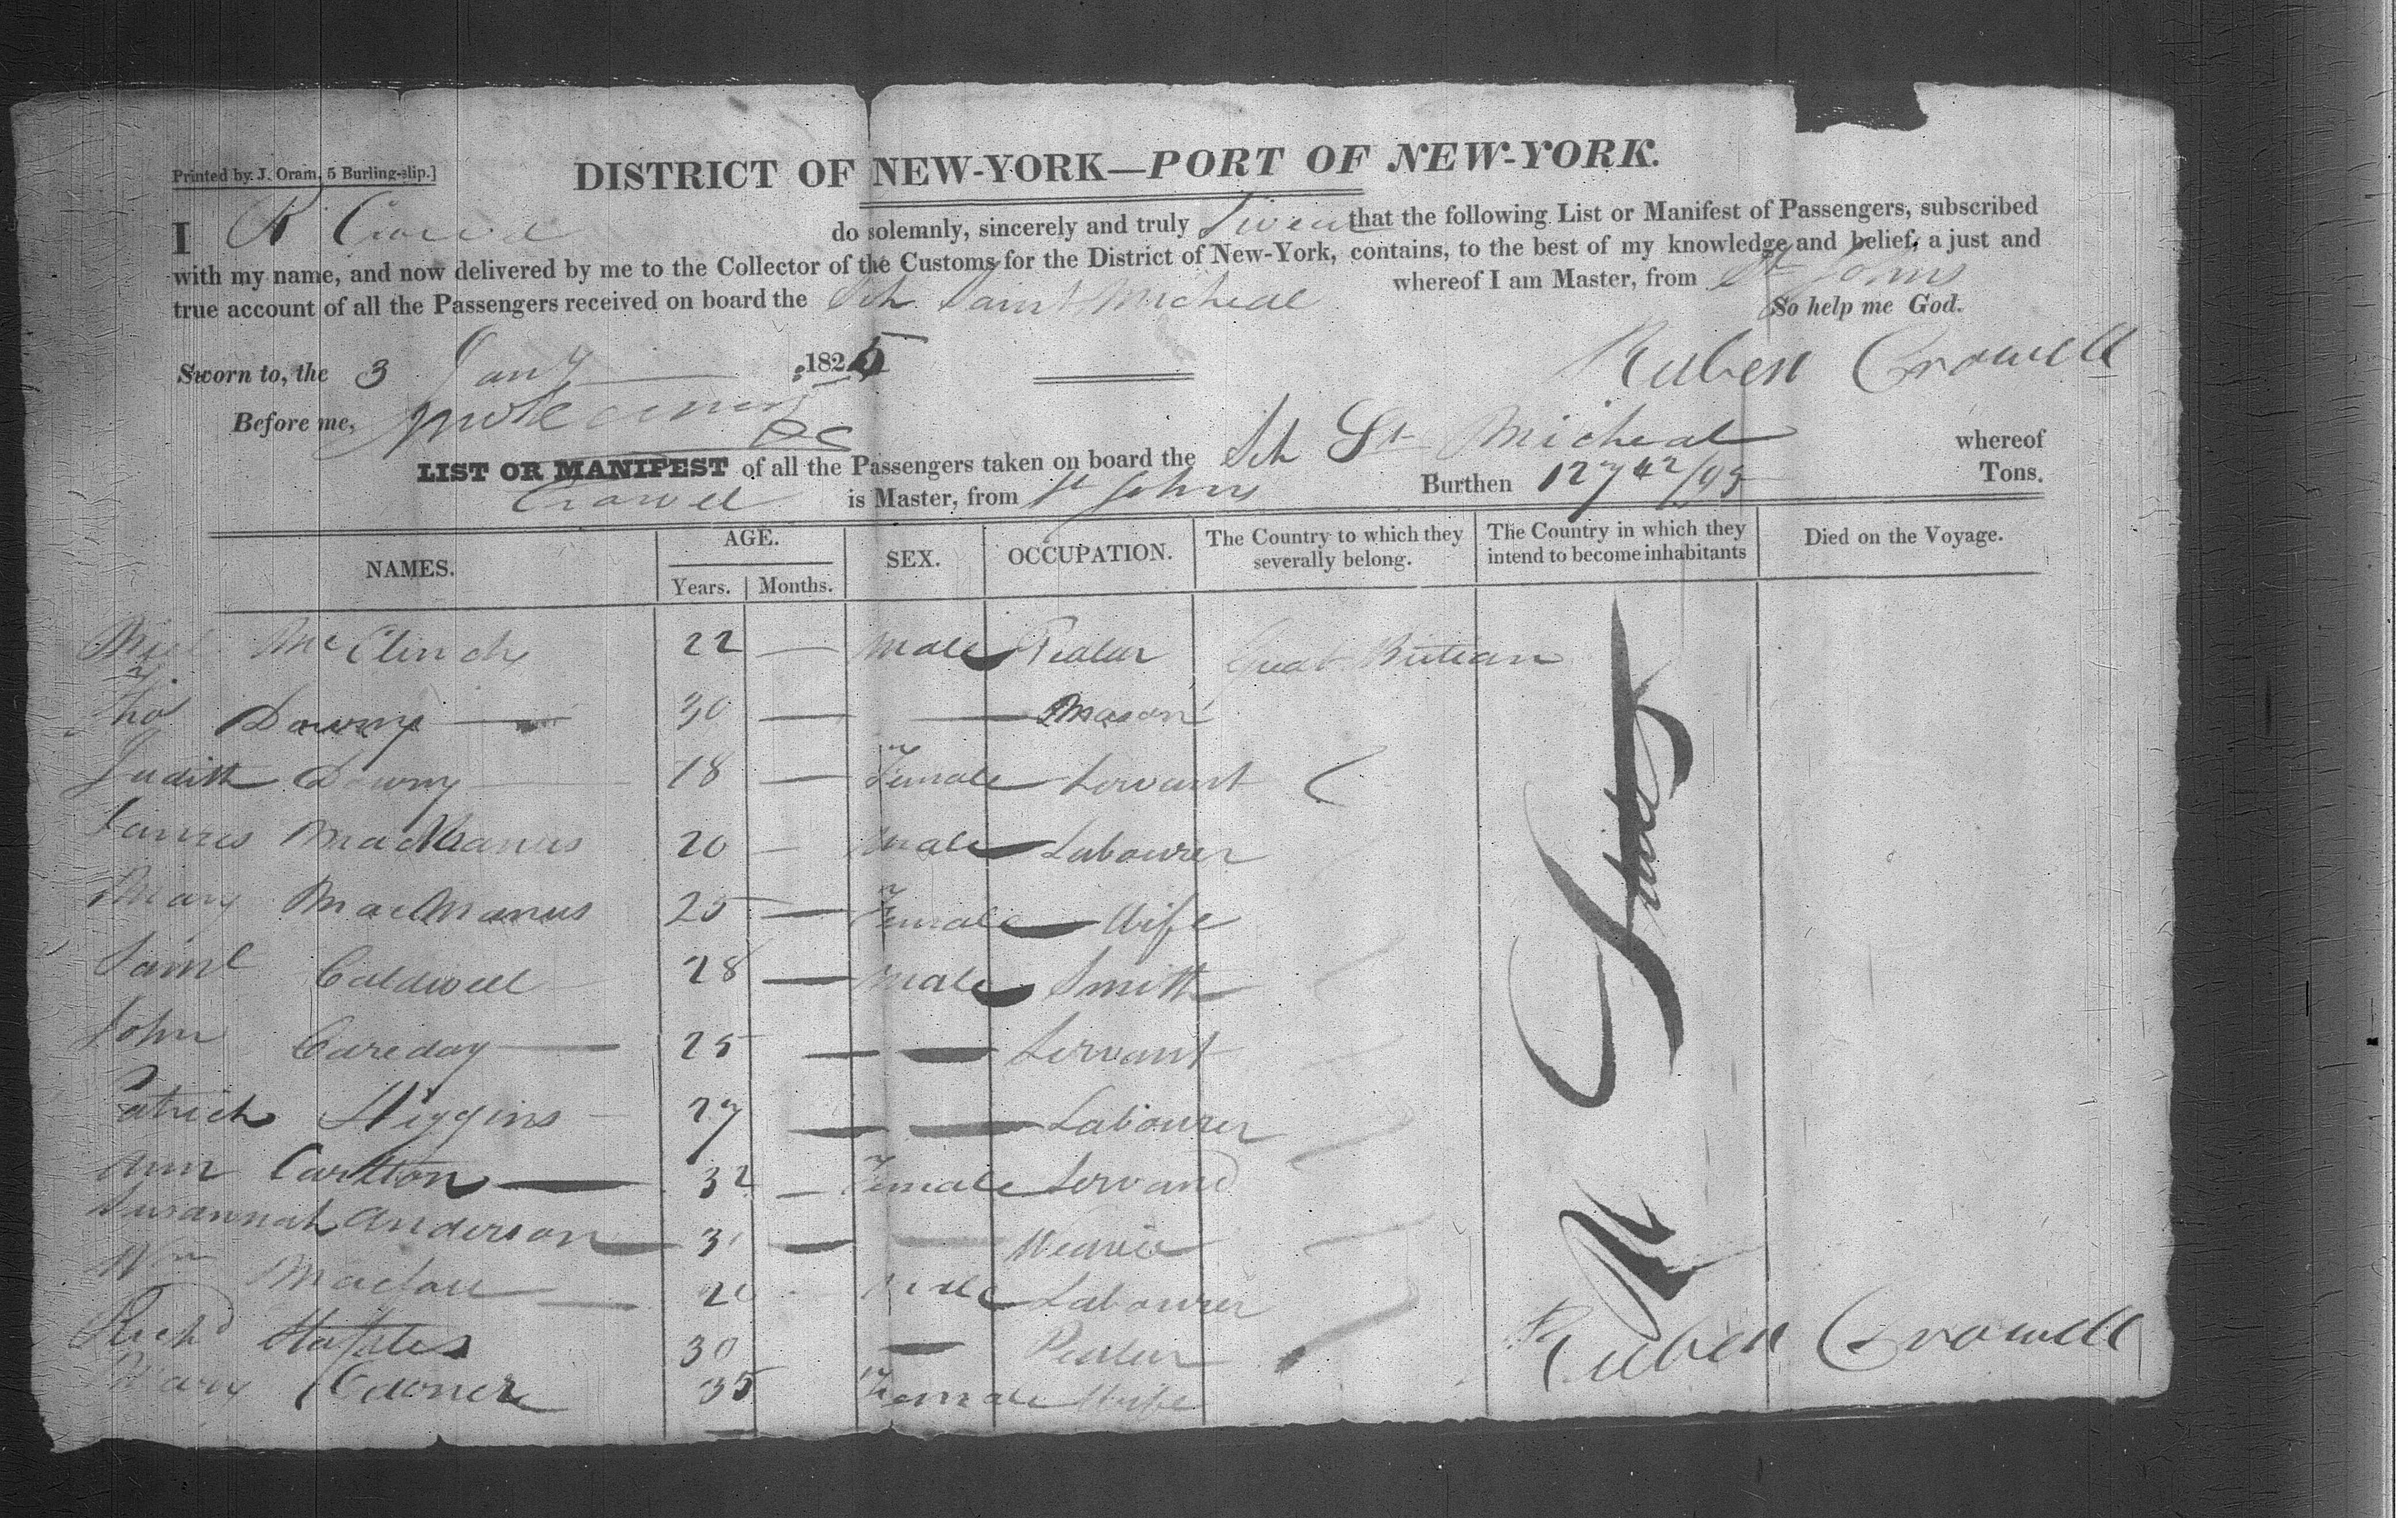 Printed by J. Oram, 5 Burling-slip.]
DISTRICT OF NEW-YORK—PORT OF NEW-YORK.
I R Crowel do solemnly, sincerely and truly Swear that the following List or Manifest of Passengers, subscribed
with my name, and now delivered by me to the Collector of the Customs for the District of New-York, contains, to the best of my knowledge and belief, a just and
true account of all the Passengers received on board the Sch Saint Micheal whereof I am Master, from St Johns
So help me God.
Sworn to, the 3 Jany 1825
Ruben Crowell
Before me,
LIST OR MANIFEST of all the Passengers taken on board the Sch St Micheal whereof
Crowel is Master, from St Johns Burthen 127 42/95 Tons.
NAMES. AGE. Years. Months. SEX. OCCUPATION. The Country to which they severally belong. The Country in which they intend to become inhabitants Died on the Voyage.
McClinchy 22 — Male Pedlar Great Britian
Thos Downy — 30 — — Mason
Judith Downy 18 — Female Servant
James MacManus 20 — Male Labourer
Mary MacManus 25 — Female Wife
Saml Caldwell 28 — Male Smith
John — 25 — — Servant
Patrick Higgins 27 — — Labourer
Ann Carlton — 32 — Female Servant
Susannah Anderson — 31 — —
Wm — 20 Male Labourer
Richd Staples 30 — Pedlar
Mary 35 Female Wife
U States
Ruben Crowell